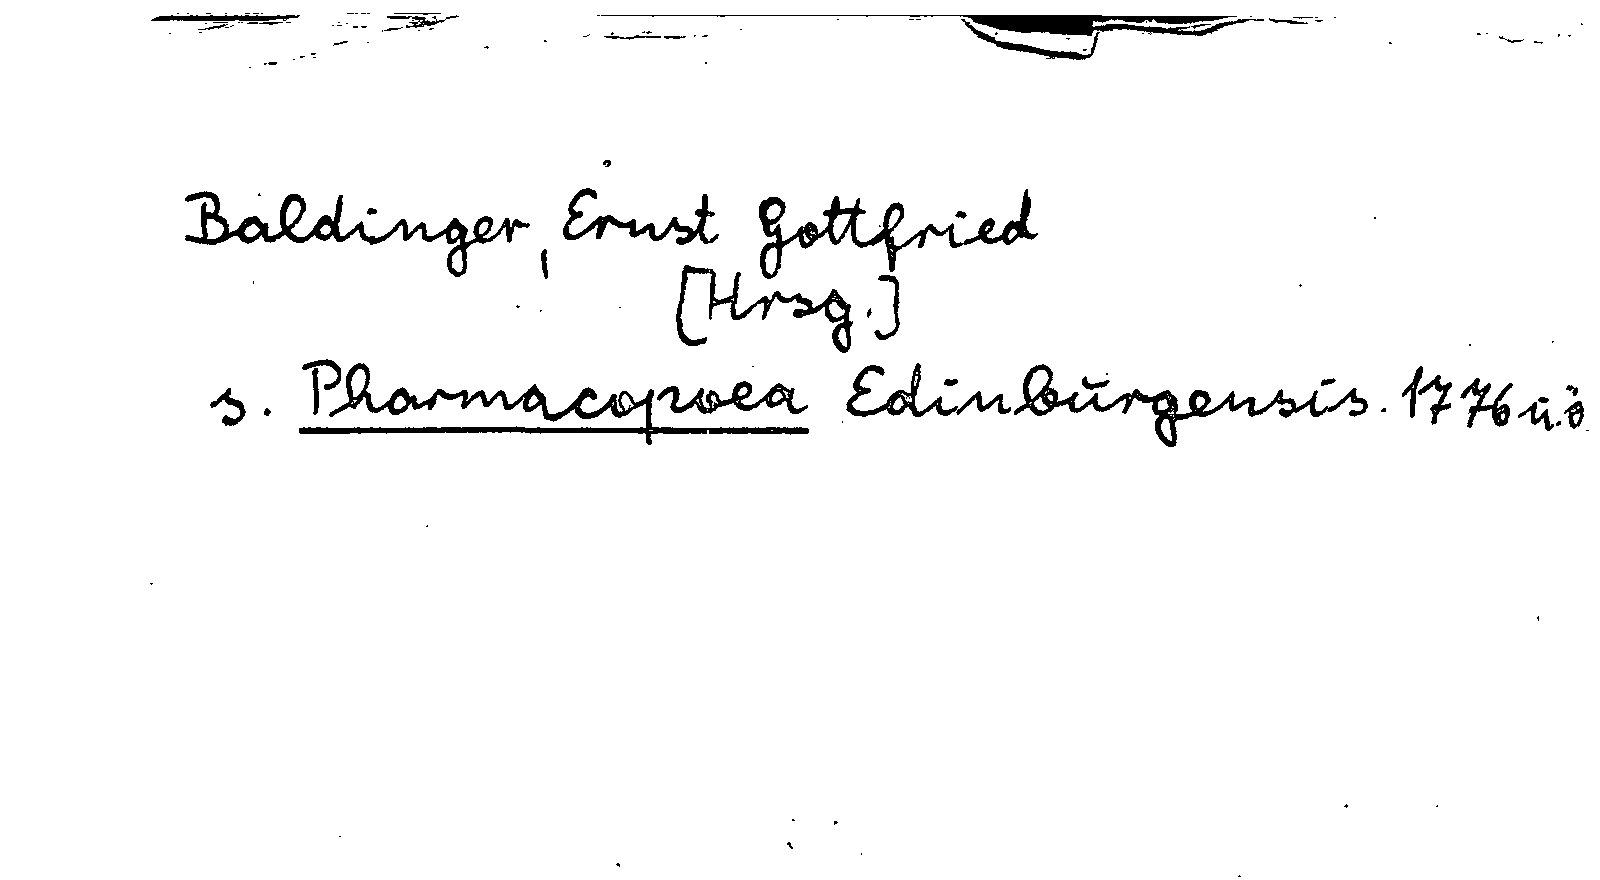 Baldinger, Ernst Gottfried
[Hrsg.]
s. Pharmacopoea Edinburgensis. 1776 u.ö